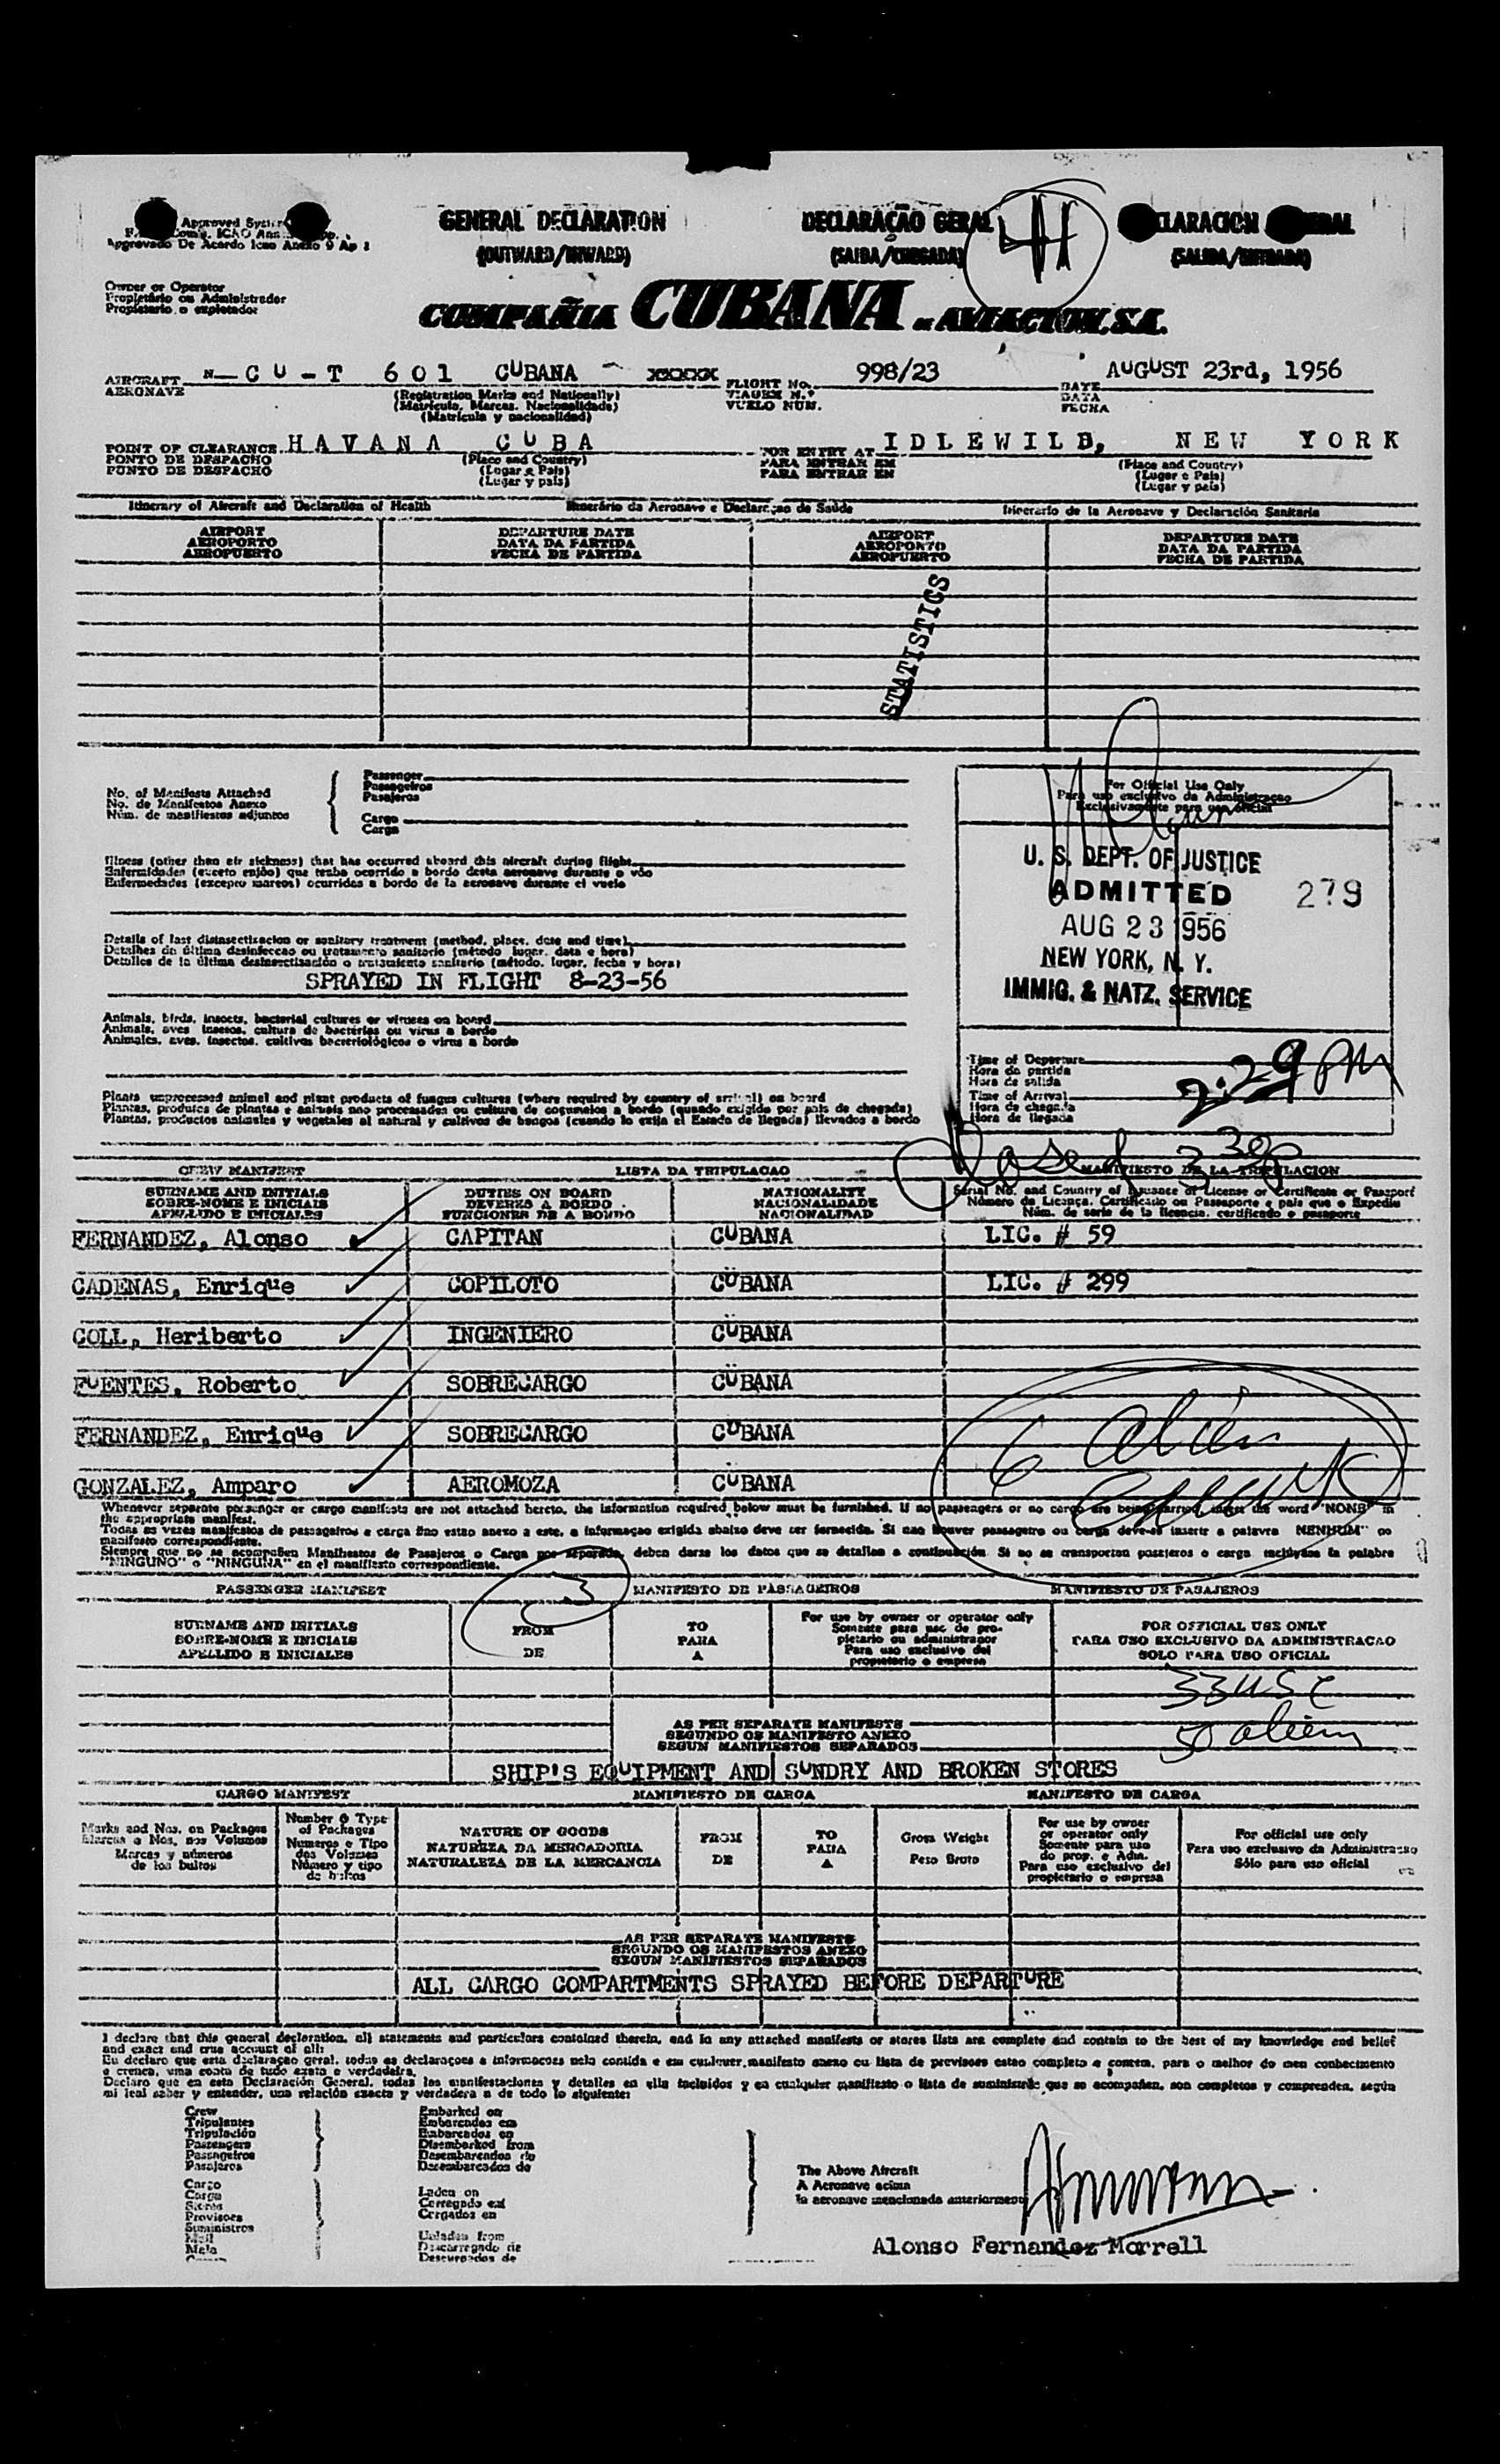 Approved
Aprovado De Acordo Icao Anexo 9 Ap
GENERAL DECLARATION
(OUTWARD/INWARD)
DECLARAÇÃO GERAL
(SAIDA/CHEGADA)
(SALIDA/ENTRADA)
Owner or Operator
Propietário ou Administrador
Propietario o explotador
COMPAÑIA CUBANA DE AVIACION, S.A.
AIRCRAFT N-CU-T 601 CUBANA - XXXXX FLIGHT No. 998/23 AUGUST 23rd, 1956
AERONAVE
(Registration Marks and Nationally)
(Matrícula, Marcas, Nacionalidade)
(Matrícula y nacionalidad)
VUELO NUM.
DATE
DATA
FECHA
POINT OF CLEARANCE HAVANA CUBA FOR ENTRY AT IDLEWILD, NEW YORK
PONTO DE DESPACHO
PUNTO DE DESPACHO
(Place and Country)
(Lugar e Pais)
(Lugar y país)
PARA ENTRAR EM
PARA ENTRAR EN
(Place and Country)
(Lugar e Pais)
(Lugar y país)
Itinerary of Aircraft and Declaration of Health
Itinerário da Aeronave e Declaraçao de Saúde
Itinerario de la Aeronave y Declaración Sanitaria
AIRPORT
AEROPORTO
AEROPUERTO
DEPARTURE DATE
DATA DA PARTIDA
FECHA DE PARTIDA
AIRPORT
AEROPORTO
AEROPUERTO
DEPARTURE DATE
DATA DA PARTIDA
FECHA DE PARTIDA
STATISTICS
No. of Manifests Attached
No. de Manifestos Anexo
Núm. de manifiestos adjuntos
Passenger
Passageiros
Pasajeros
Cargo
Carga
For Official Use Only
Para uso exclusivo da Administraçao
Exclusivamente para uso oficial
Illness (other than air sickness) that has occurred aboard this aircraft during flight
Enfermidades (exceto enjôo) que tenha ocorrido a bordo desta aeronave durante o vôo
Enfermedades (excepto mareos) ocurridas a bordo de la aeronave durante el vuelo
U. S. DEPT. OF JUSTICE
ADMITTED 279
AUG 23 1956
NEW YORK, N. Y.
IMMIG. & NATZ. SERVICE
Details of last disinsectizacion or sanitary treatment (method, place, date and time)
Detalhes da última desinfeccao ou tratamento sanitario (método lugar, data e hora)
Detalles de la última desinsectización o tratamiento sanitario (método, lugar, fecha y hora)
SPRAYED IN FLIGHT 8-23-56
Animals, birds, insects, bacterial cultures or viruses on board
Animals, aves insetos, cultura de bactérias ou virus a bordo
Animales, aves, insectos, cultivos bacteriológicos o virus a bordo
Time of Departure
Hora da partida
Hora de salida
2:29 PM
Time of Arrival
Hora de chegada
Hora de llegada
Plants unprocessed animal and plant products of fungus cultures (where required by country of arrival) on board
Plantas, produtos de plantas e animais nao processadas ou cultura de cogumelos a bordo (quando exigido por pais de chegada)
Plantas, productos animales y vegetales al natural y cultivos de hongos (cuando lo exija el Estado de llegada) llevados a bordo
Closed 3 30p
CREW MANIFEST
LISTA DA TRIPULACAO
MANIFIESTO DE LA TRIPULACION
SURNAME AND INITIALS
SOBRE-NOME E INICIAIS
APELLIDO E INICIALES
DUTIES ON BOARD
DEVERES A BORDO
FUNCIONES DE A BORDO
NATIONALITY
NACIONALIDADE
NACIONALIDAD
Serial No. and Country of Issuance of License or Certificate or Passport
Número da Licença, Certificado ou Passaporte e pais que o Expediu
Núm. de serie de la licencia, certificado o pasaporte
FERNANDEZ, Alonso CAPITAN CUBANA LIC. # 59
CADENAS, Enrique COPILOTO CUBANA LIC. # 299
COLL, Heriberto INGENIERO CUBANA
FUENTES, Roberto SOBRECARGO CUBANA
FERNANDEZ, Enrique SOBRECARGO CUBANA
GONZALEZ, Amparo AEROMOZA CUBANA
6 alien
Whenever separate passenger or cargo manifests are not attached hereto, the information required below must be furnished. If no passengers or no cargo are being carried, insert the word "NONE" in
the appropriate manifest.
Todas as vezes manifestos de passageiros e carga nao estao anexo a este, a informaçao exigida abaixo deve ser fornecida. Si nao houver passageiro ou carga deve-se inserir a palavra NENHUM" no
manifesto correspondiente.
Siempre que no se acompañen Manifiestos de Pasajeros o Carga por separado, deben darse los datos que se detallan a continuación. Si no se transportan pasajeros o carga inclúyase la palabra
"NINGUNO" o "NINGUNA" en el manifiesto correspondiente.
PASSENGER MANIFEST
3
MANIFESTO DE PASSAGEIROS
MANIFIESTO DE PASAJEROS
SURNAME AND INITIALS
SOBRE-NOME E INICIAIS
APELLIDO E INICIALES
FROM
DE
TO
PARA
A
For use by owner or operator only
Somente para uso de pro-
pietario ou administrador
Para uso exclusivo del
propietario o empresa
FOR OFFICIAL USE ONLY
PARA USO EXCLUSIVO DA ADMINISTRACAO
SOLO PARA USO OFICIAL
33 USC
50 alien
AS PER SEPARATE MANIFESTS
SEGUNDO OS MANIFESTO ANEXO
SEGUN MANIFIESTOS SEPARADOS
SHIP'S EQUIPMENT AND SUNDRY AND BROKEN STORES
CARGO MANIFEST
MANIFIESTO DE CARGA
MANIFESTO DE CARGA
Marks and Nos. on Packages
Marcas e Nos. nos Volumes
Marcas y números
de los bultos
Number & Type
of Packages
Numeros e Tipo
dos Volumes
Número y tipo
de bultos
NATURE OF GOODS
NATUREZA DA MERCADORIA
NATURALEZA DE LA MERCANCIA
FROM
DE
TO
PARA
A
Gross Weight
Peso Bruto
For use by owner
or operator only
Somente para uso
do prop. e Adm.
Para uso exclusivo del
propietario o empresa
For official use only
Para uso exclusivo da Administracao
Sólo para uso oficial
AS PER SEPARATE MANIFESTS
SEGUNDO OS MANIFESTOS ANEXO
SEGUN MANIFIESTOS SEPARADOS
ALL CARGO COMPARTMENTS SPRAYED BEFORE DEPARTURE
I declare that this general declaration, all statements and particulars contained therein, and in any attached manifests or stores lists are complete and contain to the best of my knowledge and belief
and exact and true account of all:
Eu declaro que esta declaraçao geral, todas as declaraçoes e informacoes nela contida e em cualquer manifesto anexo ou lista de previsoes estao completa e contem, para o melhor do meu conhecimento
e crenca, uma conta de tudo exata e verdadeira.
Declaro que en esta Declaración General, todas las manifestaciones y detalles en ella incluidos y en cualquier manifiesto o lista de suministros que se acompañen, son completos y comprenden, según
mi leal saber y entender, una relación exacta y verdadera a de todo lo siguiente:
Crew
Tripulantes
Tripulación
Passengers
Passageiros
Pasajeros
Cargo
Carga
Stores
Provisoes
Suministros
Mail
Mala
Embarked on
Embarcados em
Embarcados en
Disembarked from
Desembarcados de
Desembarcados de
Laden on
Carregado em
Cargados en
Unladen from
Descarregado de
Descargados de
The Above Aircraft
A Aeronave acima
la aeronave mencionada anteriormente
Alonso Fernandez Morrell